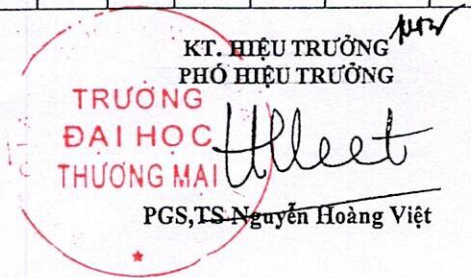 KT. HIỆU TRƯỞNG
PHÓ HIỆU TRƯỞNG
TRƯỜNG
ĐẠI HỌC
THƯƠNG MẠI
PGS,TS Nguyễn Hoàng Việt